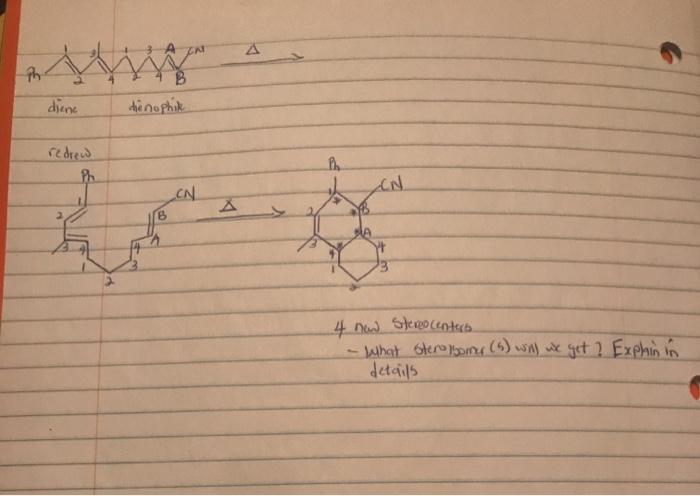 1 3 1 3 A CN Δ
Ph 2 4 2 4 B
diene dienophile
redrew
Ph Ph
CN CN
1 B Δ 1 * * B
2 A 2 * A
3 4 4 3 4 * 4
1 3 1 3
2 2
4 new stereocenters
- What steroisomer (s) will we get ? Explain in
details